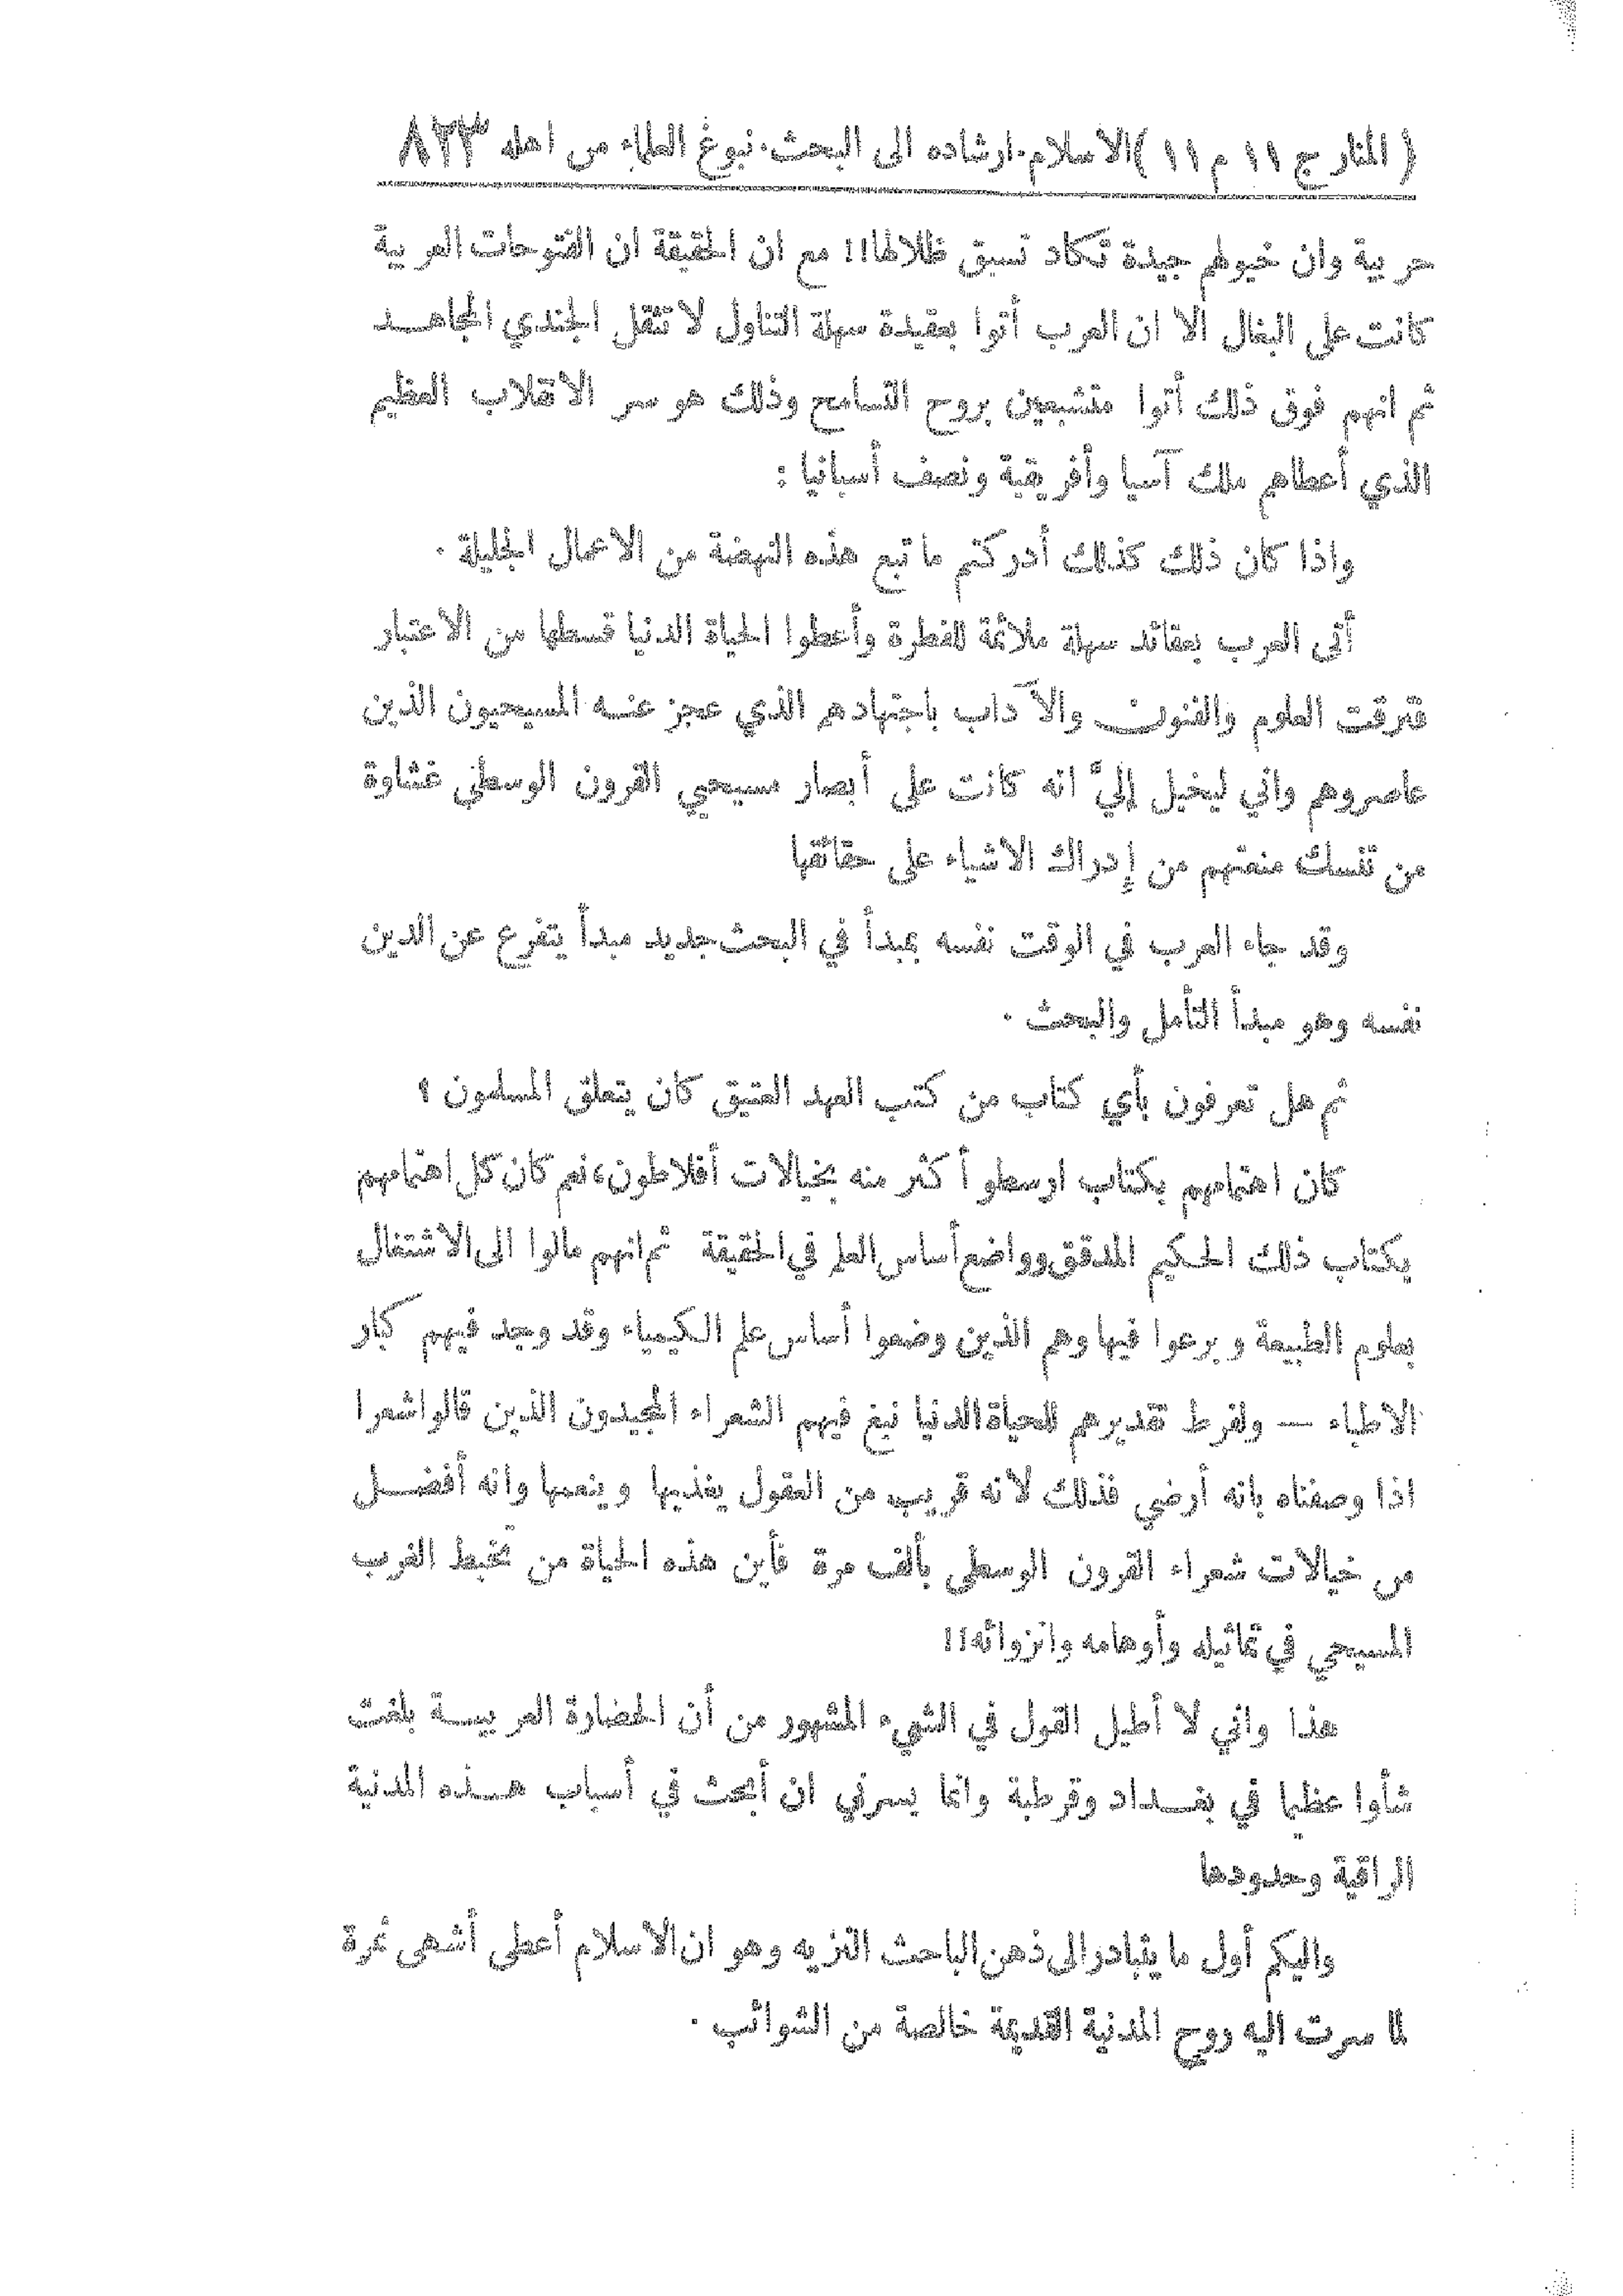 ( المنار ج ١١ م ١١ ) الاسلام. ارشاده الى البحث. نبوغ العلماء من اهله ٨٢٣
حربية وان خيولهم جيدة تكاد تسبق ظلالها!! مع ان الحقيقة ان الفتوحات العربية
كانت على البغال الا ان العرب أتوا بعقيدة سهلة التناول لا تثقل الجندي المجاهد
ثم انهم فوق ذلك أتوا متشبعين بروح التسامح وذلك هو سر الانقلاب العظيم
الذي أعطاهم ملك آسيا وأفريقية ونصف أسبانيا :
واذا كان ذلك كذلك أدركتم ما تبع هذه النهضة من الاعمال الجليلة .
أتى العرب بعقائد سهلة ملائمة للفطرة وأعطوا الحياة الدنيا قسطها من الاعتبار
فترقت العلوم والفنون والآداب باجتهادهم الذي عجز عنه المسيحيون الذين
عاصروهم واني ليخيل إليَّ انه كانت على أبصار مسيحيي القرون الوسطى غشاوة
من تنسك منعتهم من إدراك الاشياء على حقائقها
وقد جاء العرب في الوقت نفسه بمبدأ في البحث جديد مبدأ يتفرع عن الدين
نفسه وهو مبدأ التأمل والبحث .
ثم هل تعرفون بأي كتاب من كتب العهد العتيق كان يتعلق المسلمون ؟
كان اهتمامهم بكتاب ارسطو أكثر منه بخيالات أفلاطون، نعم كان كل اهتمامهم
بكتاب ذلك الحكيم المدقق وواضع أساس العلم في الحقيقة ثم انهم مالوا الى الاشتغال
بعلوم الطبيعة وبرعوا فيها وهم الذين وضعوا أساس علم الكيمياء وقد وجد فيهم كبار
الاطباء — ولفرط تقديرهم للحياة الدنيا نبغ فيهم الشعراء المجيدون الذين قالوا شعرا
اذا وصفناه بانه أرضي فذلك لانه قريب من العقول يغذيها وينعمها وانه أفضل
من خيالات شعراء القرون الوسطى بألف مرة فأين هذه الحياة من تخبط الغرب
المسيحي في تماثيله وأوهامه وانزوائه!!
هذا واني لا أطيل القول في الشيء المشهور من أن الحضارة العربية بلغت
شأوا عظيما في بغداد وقرطبة وانما يسرني ان أبحث في أسباب هذه المدنية
الراقية وحدودها
واليكم أول ما يتبادر الى ذهن الباحث النزيه وهو ان الاسلام أعطى أشهى ثمرة
لما سرت اليه روح المدنية القديمة خالصة من الشوائب .